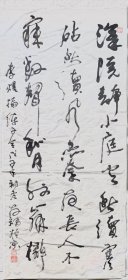 深院静小庭空断续寒
砧断续风无奈夜长人不
寐数声和月到帘栊